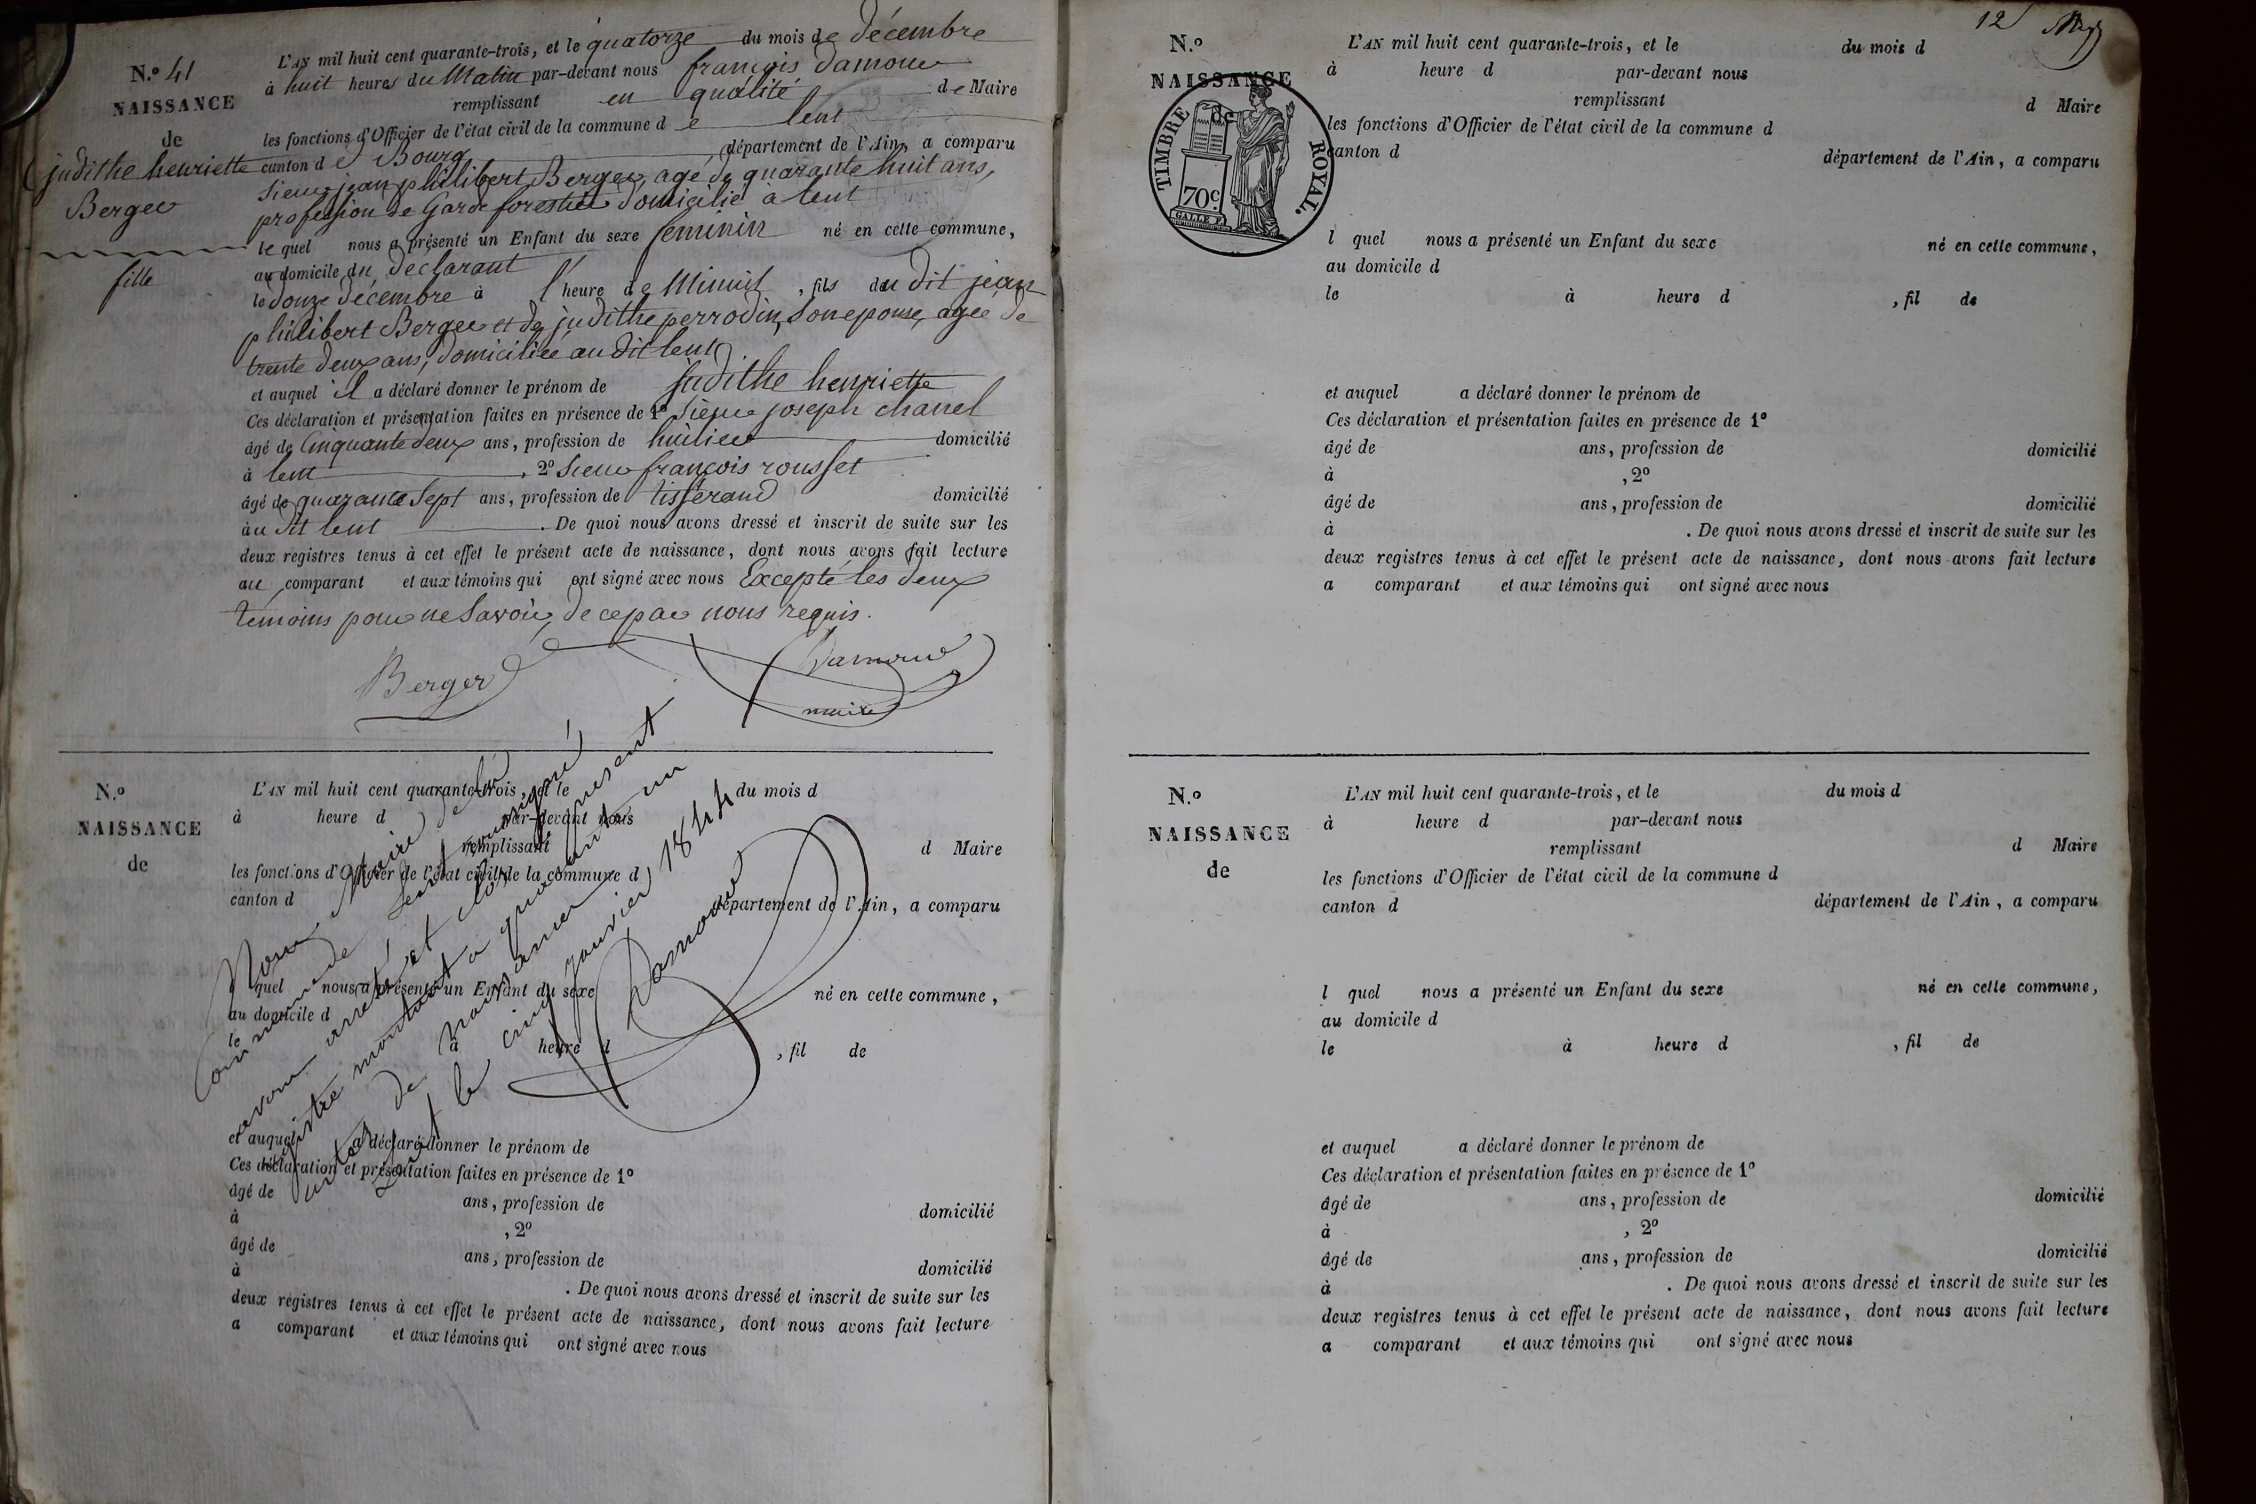 N.o 41
NAISSANCE
de
judithe henriette
Berger
fille
L'AN mil huit cent quarante-trois, et le quatorze du mois de décembre
à huit heures du Matin par-devant nous françois Damour
remplissant en qualité de Maire
les fonctions d'Officier de l'état civil de la commune de lent
canton de Bourg département de l'Ain, a comparu
Sieur jean philibert Berger, agé de quarante huit ans,
profession de Garde forestier domicilié à lent
le quel nous a présenté un Enfant du sexe feminin né en cette commune,
au domicile du déclarant
le douze décembre à l'heure de Minuit, fils du dit jean
philibert Berger et de judithe perrodin, son epouse, agée de
trente deux ans, domiciliée au dit lent.
et auquel il a déclaré donner le prénom de judithe henriette
Ces déclaration et présentation faites en présence de 1º Sieur joseph chanel
âgé de Cinquante deux ans, profession de huilier domicilié
à lent, 2º Sieur françois rousset
âgé de quarante Sept ans, profession de tisserand domicilié
au dit lent. De quoi nous avons dressé et inscrit de suite sur les
deux registres tenus à cet effet le présent acte de naissance, dont nous avons fait lecture
au comparant et aux témoins qui ont signé avec nous Excepté les deux
temoins pour ne Savoir, de ce par nous requis.
Berger
Damour
maire
N.o
NAISSANCE
de
L'AN mil huit cent quarante-trois, et le du mois d
à heure d par-devant nous
remplissant d Maire
les fonctions d'Officier de l'état civil de la commune d
canton d département de l'Ain, a comparu
l quel nous a présenté un Enfant du sexe né en cette commune,
au domicile d
le à heure d , fil de
et auquel a déclaré donner le prénom de
Ces déclaration et présentation faites en présence de 1º
âgé de ans, profession de domicilié
à , 2º
âgé de ans, profession de domicilié
à . De quoi nous avons dressé et inscrit de suite sur les
deux registres tenus à cet effet le présent acte de naissance, dont nous avons fait lecture
a comparant et aux témoins qui ont signé avec nous
Nous, Maire de la
Commune de lent soussigné
avons arrêté et clos le présent
registre montant a quarante un
actes de naissance
lent le cinq janvier 1844
Damour
12
N.o
NAISSANCE
de
TIMBRE ROYAL.
70c.
GALLE F.
L'AN mil huit cent quarante-trois, et le du mois d
à heure d par-devant nous
remplissant d Maire
les fonctions d'Officier de l'état civil de la commune d
canton d département de l'Ain, a comparu
l quel nous a présenté un Enfant du sexe né en cette commune,
au domicile d
le à heure d , fil de
et auquel a déclaré donner le prénom de
Ces déclaration et présentation faites en présence de 1º
âgé de ans, profession de domicilié
à , 2º
âgé de ans, profession de domicilié
à . De quoi nous avons dressé et inscrit de suite sur les
deux registres tenus à cet effet le présent acte de naissance, dont nous avons fait lecture
a comparant et aux témoins qui ont signé avec nous
N.o
NAISSANCE
de
L'AN mil huit cent quarante-trois, et le du mois d
à heure d par-devant nous
remplissant d Maire
les fonctions d'Officier de l'état civil de la commune d
canton d département de l'Ain, a comparu
l quel nous a présenté un Enfant du sexe né en cette commune,
au domicile d
le à heure d , fil de
et auquel a déclaré donner le prénom de
Ces déclaration et présentation faites en présence de 1º
âgé de ans, profession de domicilié
à , 2º
âgé de ans, profession de domicilié
à . De quoi nous avons dressé et inscrit de suite sur les
deux registres tenus à cet effet le présent acte de naissance, dont nous avons fait lecture
a comparant et aux témoins qui ont signé avec nous